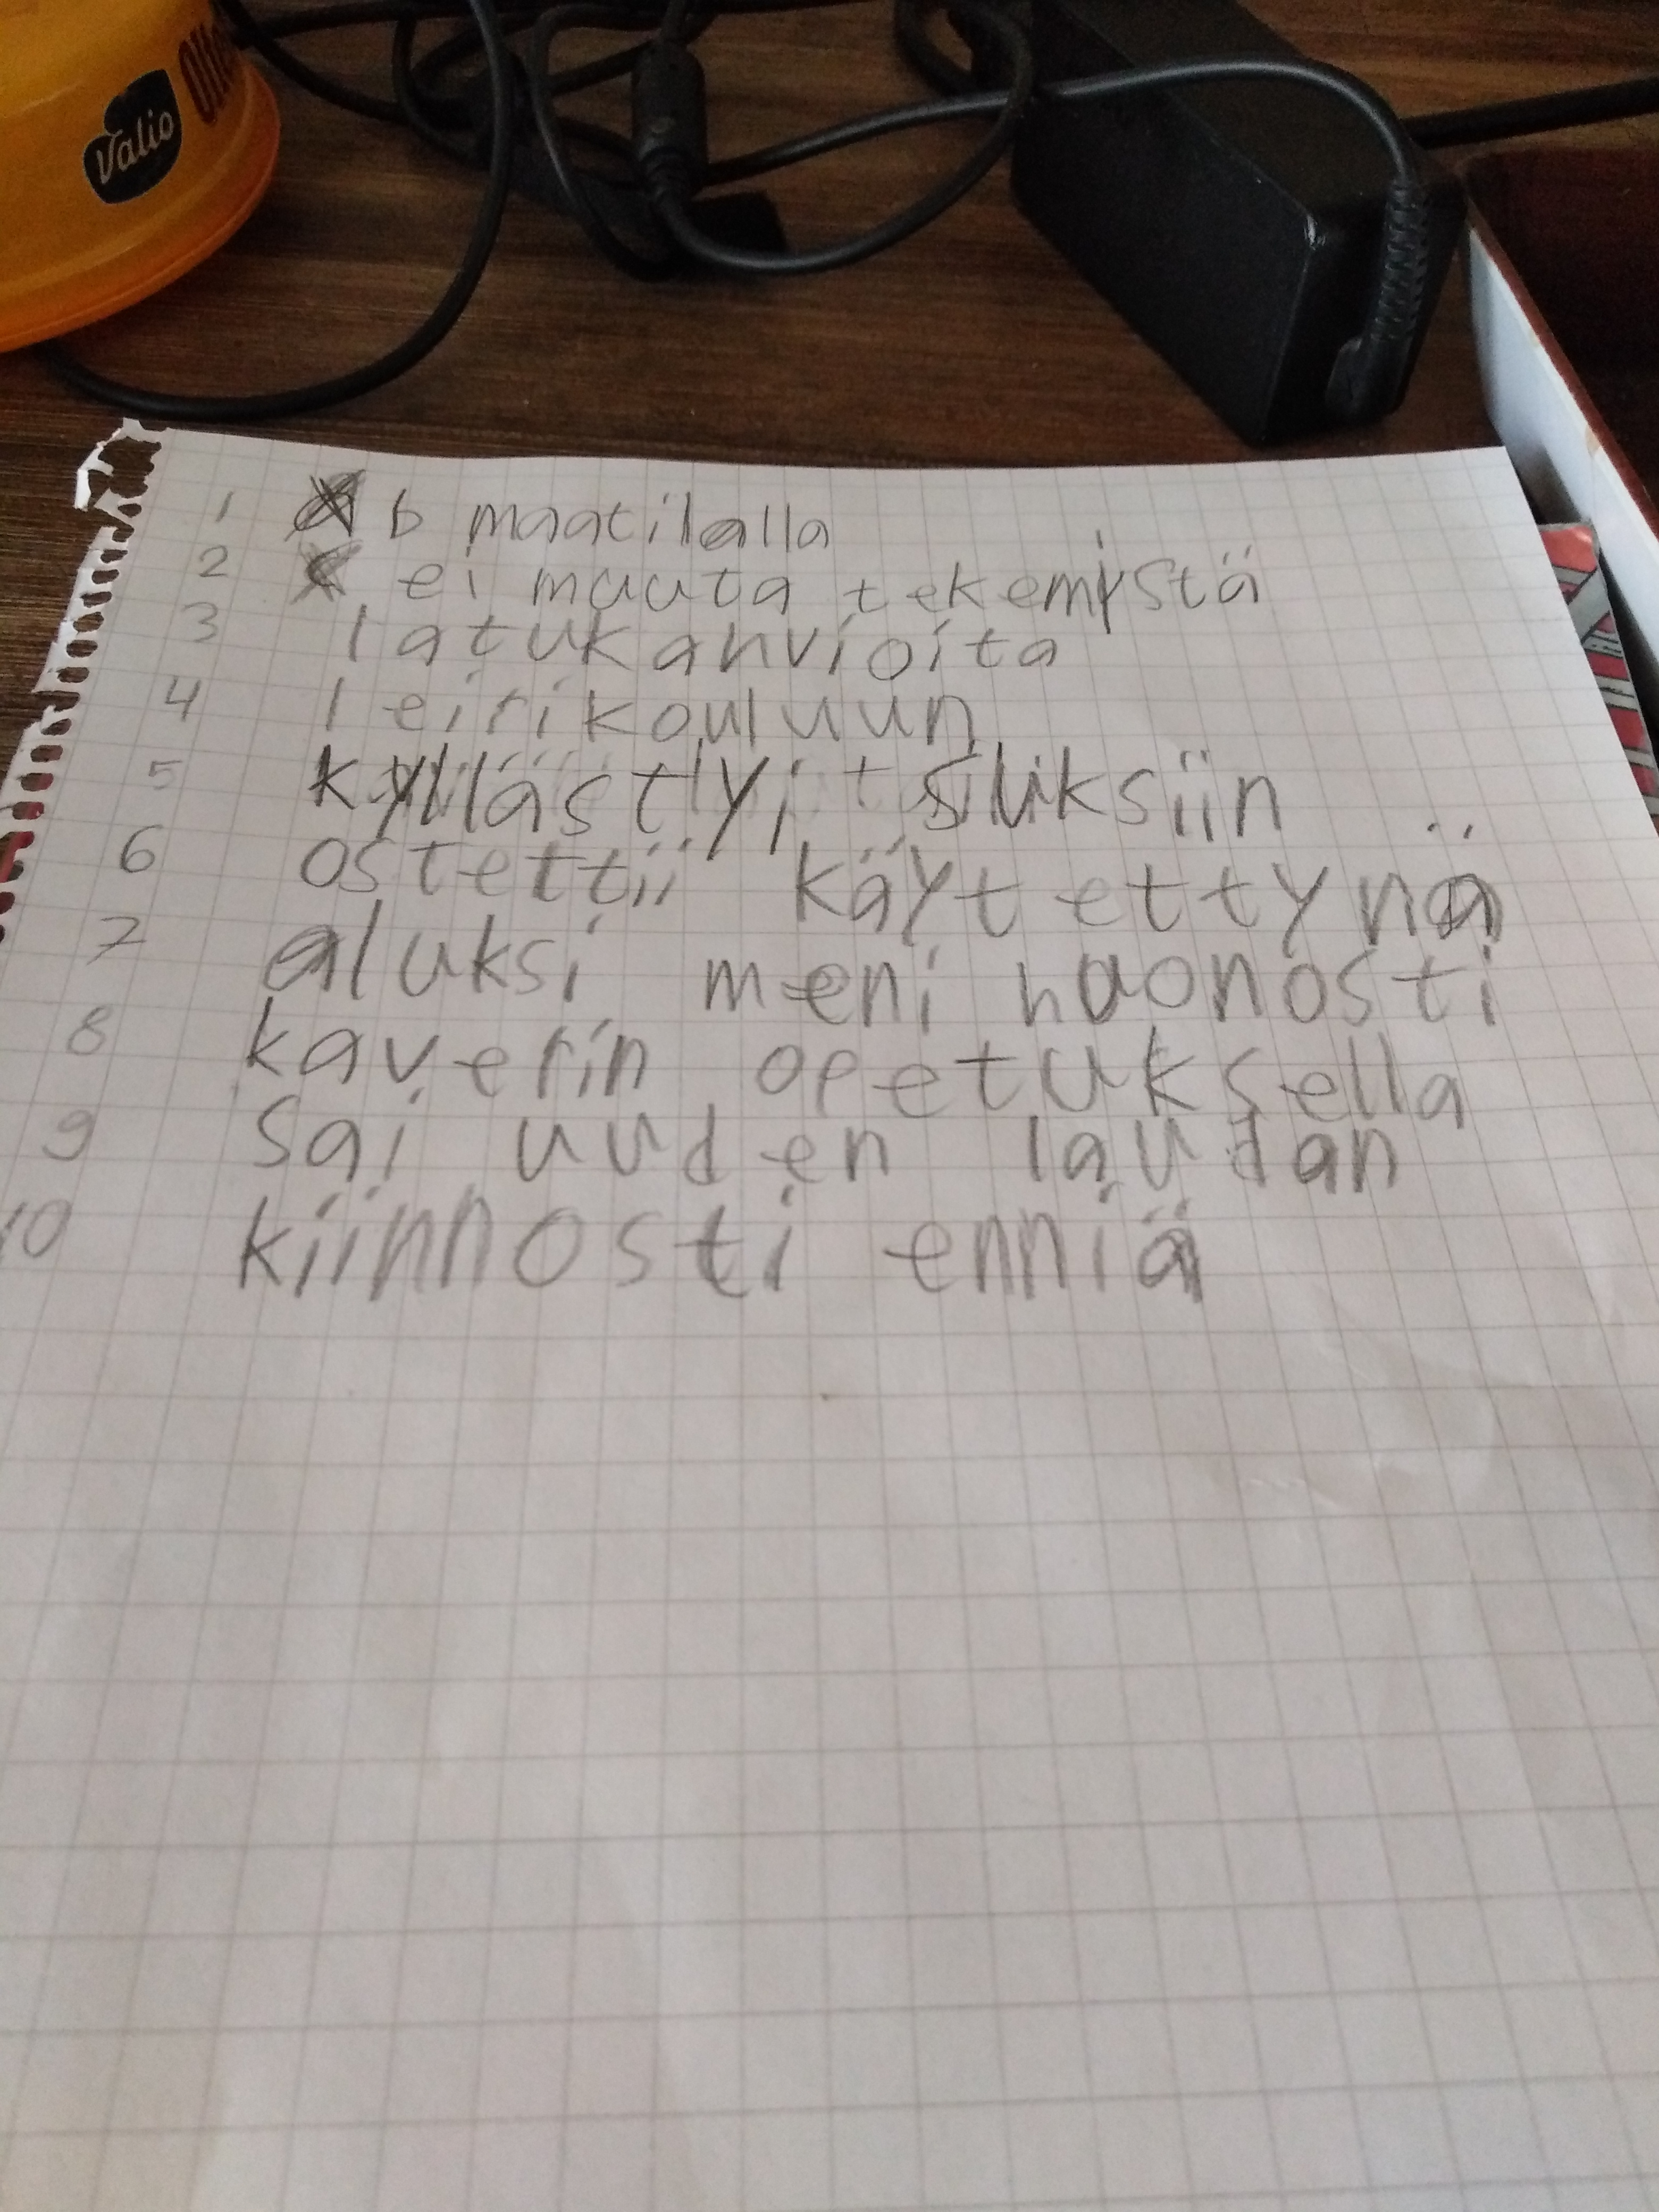 Valio
1 b maatilalla
2 ei muuta tekemistä
3 latukahvioita
4 leirikouluun
5 kyllästyi suksiin
6 ostettii käytettynä
7 aluksi meni huonosti
8 kaverin opetuksella
9 sai uuden laudan
10 kiinnosti enniä